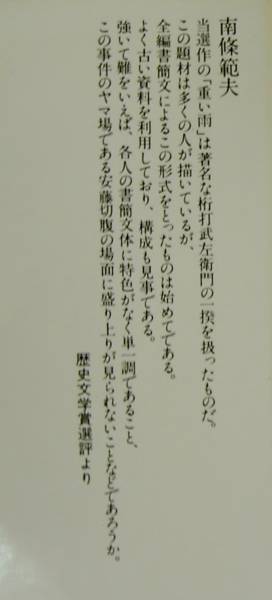 南條範夫
当選作の「重い雨」は著名な桁打武左衛門の一揆を扱ったものだ。
この題材は多くの人が描いているが、
全編書簡文によるこの形式をとったものは始めてである。
よく古い資料を利用しており、構成も見事である。
強いて難をいえば、各人の書簡文体に特色がなく単一調であること、
この事件のヤマ場である安藤切腹の場面に盛り上りが見られないことなどであろうか。
歴史文学賞選評より